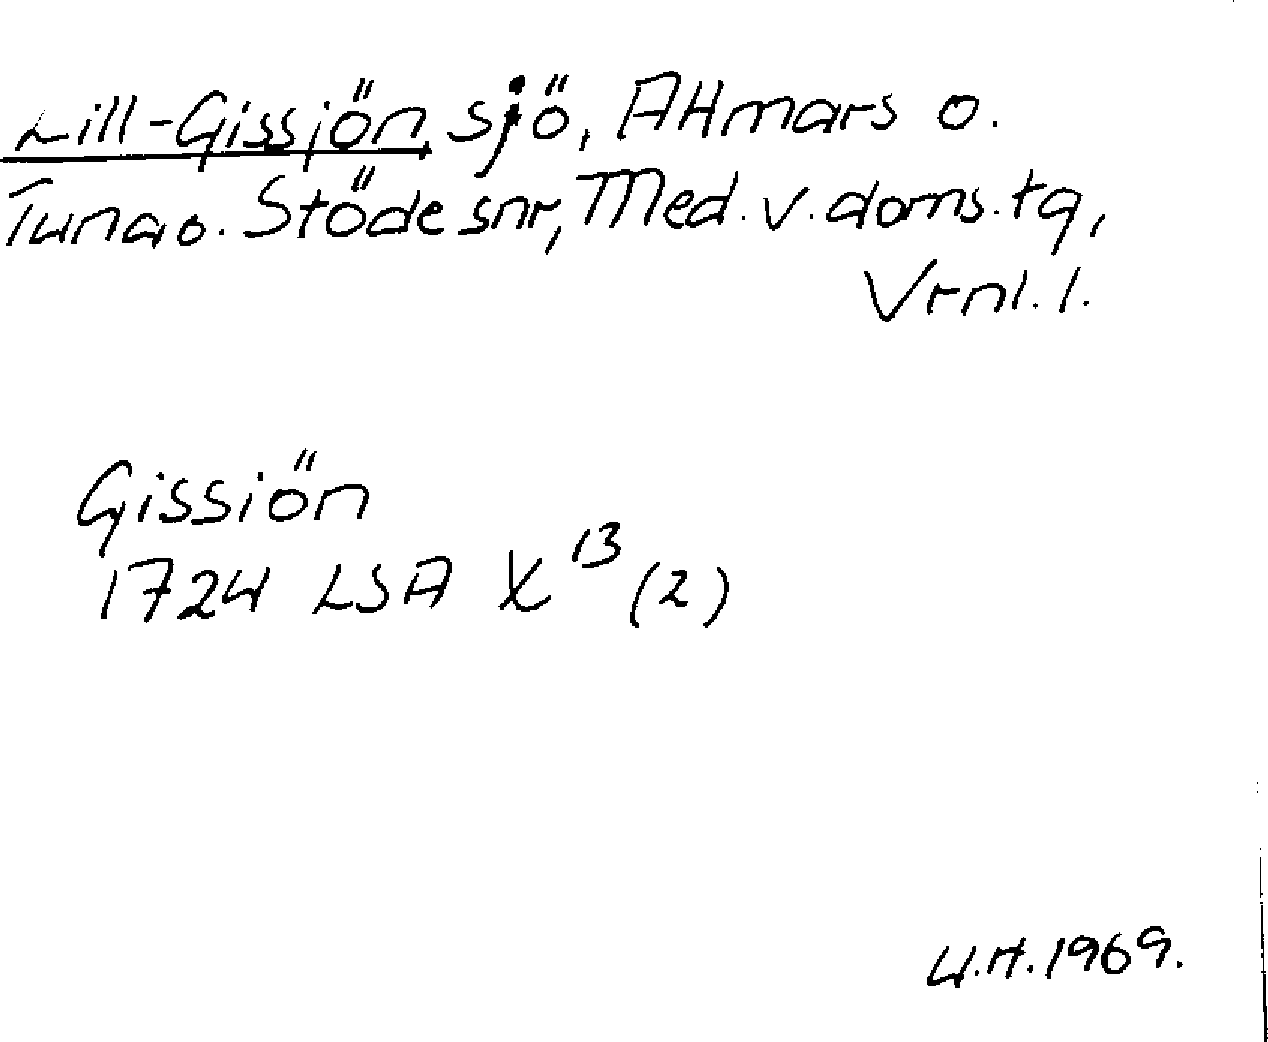 Lill-Gissjön, sjö, Attmars o.
Tuna o. Stöde snr, Med. v. doms. tg,
Vrnl. l.
Gissiön
1724 LSA X 13 (2)
U.H. 1969.